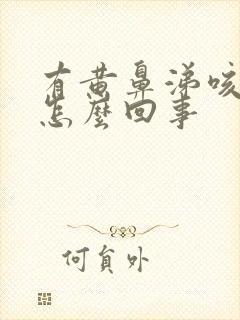 有黄鼻涕咳
怎麼回事
何負外